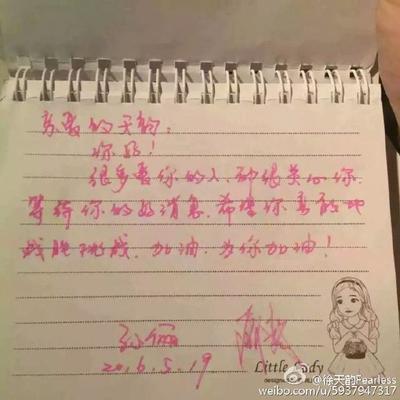 亲爱的天韵:
你好!
很多爱你的人,都很关心你.
等待你的好消息,希望你勇敢地
战胜挑战,加油,为你加油!
孙俪
2016.5.19
Little Lady
@徐天韵Fearless
weibo.com/u/5937947317